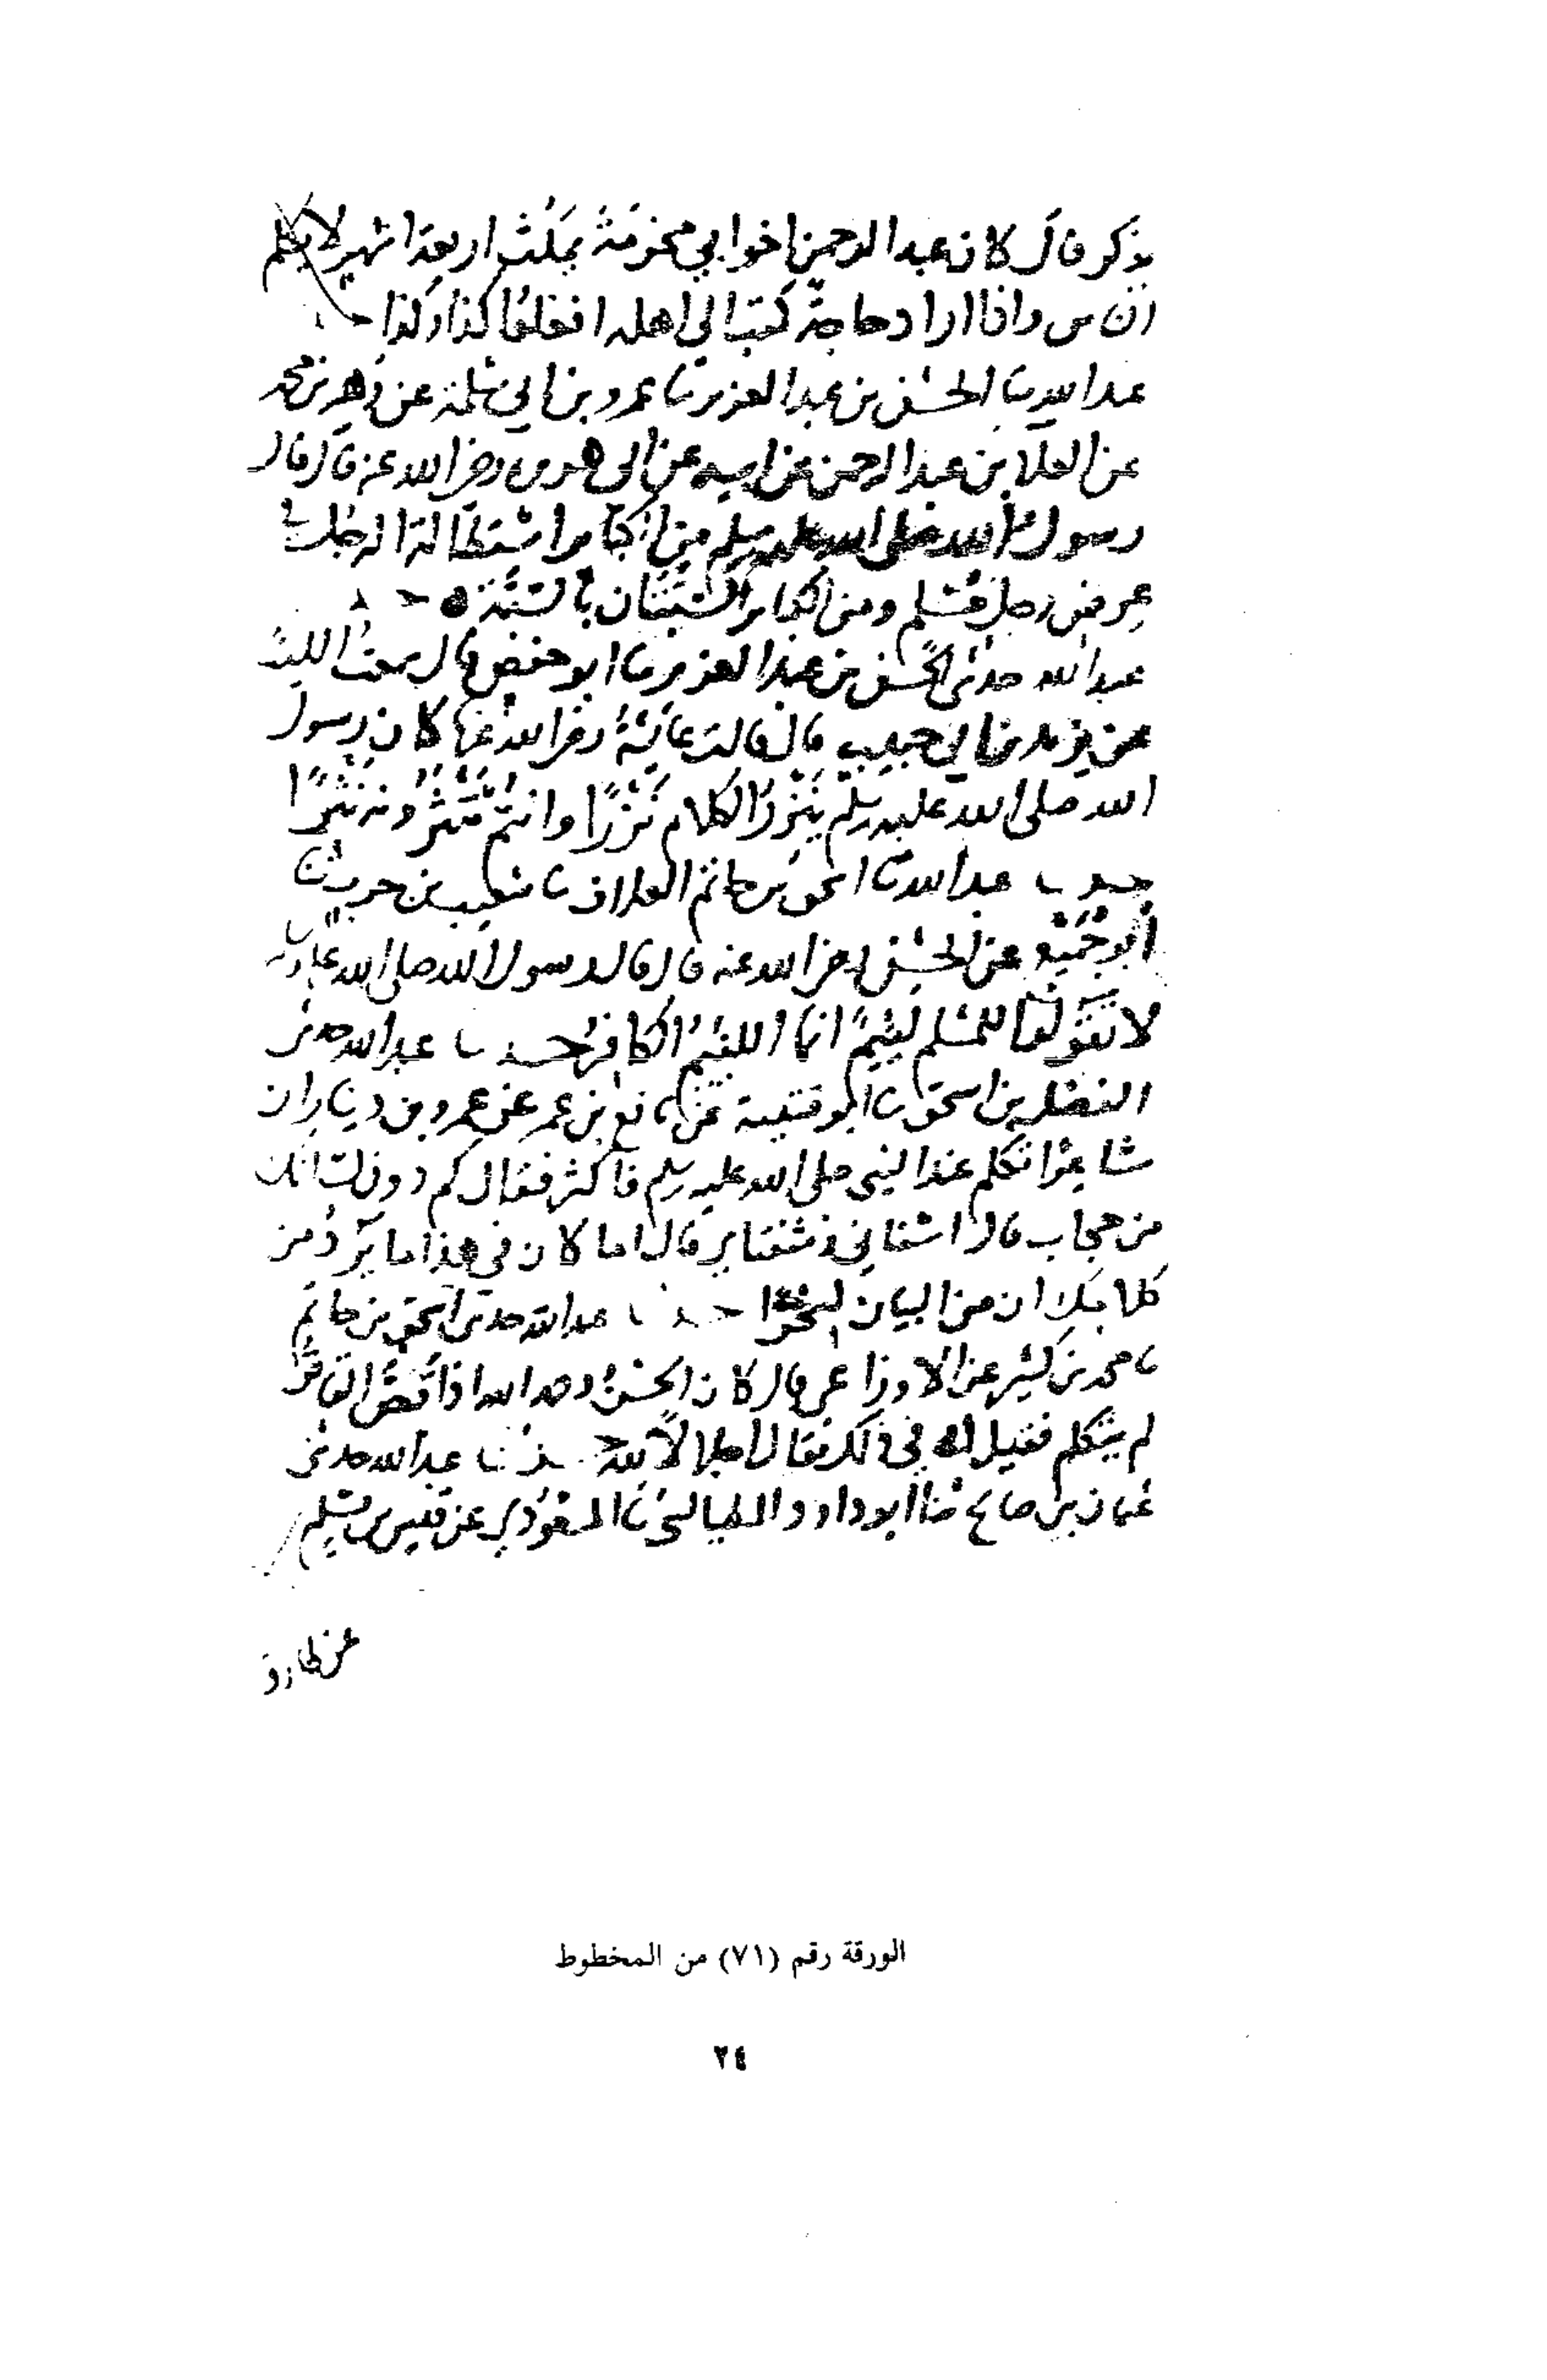 يذكر قال كان عبد الرحمن اخو ابي مخرمة يمكث اربعة اشهر لا يكلم
الناس واذا اراد حاجة كتب الى اهله افعلوا كذا وكذا
عبد الله نا الحسن بن عبد العزيز نا عمرو بن ابي سلمة عن زهير بن محمد
عن العلا بن عبد الرحمن عن ابيه عن ابي هريرة رضي الله عنه قال قال
رسول الله صلى الله عليه وسلم من الكبائر استطالة الرجل في
عرض رجل مسلم ومن الكبائر السبتان بالسبة ه
عبد الله حدثني الحسن بن عبد العزيز نا ابو حفص قال سمعت الليث
عن يزيد بن ابي حبيب قال قالت عائشة رضي الله عنها كان رسول
الله صلى الله عليه وسلم ينزر الكلام نزرا وانتم تنثرونه نثرا
حدثنا عبد الله نا اسحق بن حاتم العلاف نا شعيب بن حرب نا
أبو جميع عن الحسن رضي الله عنه قال قال رسول الله صلى الله عليه
لا تقولوا للمسلم لئيم انما اللئيم الكافر حدثنا عبد الله حدثني
الفضل بن اسحق نا ابو قتيبة عن نافع بن عمر عن عمرو بن دينار ان
شاعرا تكلم عند النبي صلى الله عليه وسلم فاكثر فقال كم دون لسانك
من حجاب قال اسناني وشفتاي قال اما كان في هذا ما يرد من
كلامك ان من البيان لسحرا حدثنا عبد الله حدثني اسحق بن حاتم
نا محمد بن كثير عن الاوزاعي قال كان الحسن رحمه الله اذا قص القاص
لم يتكلم فقيل له في ذلك فقال اجلالا لله حدثنا عبد الله حدثني
عثمان بن صالح نا ابو داود الطيالسي نا المسعودي عن قيس بن مسلم
عن طارق
الورقة رقم (٧١) من المخطوط
٢٤